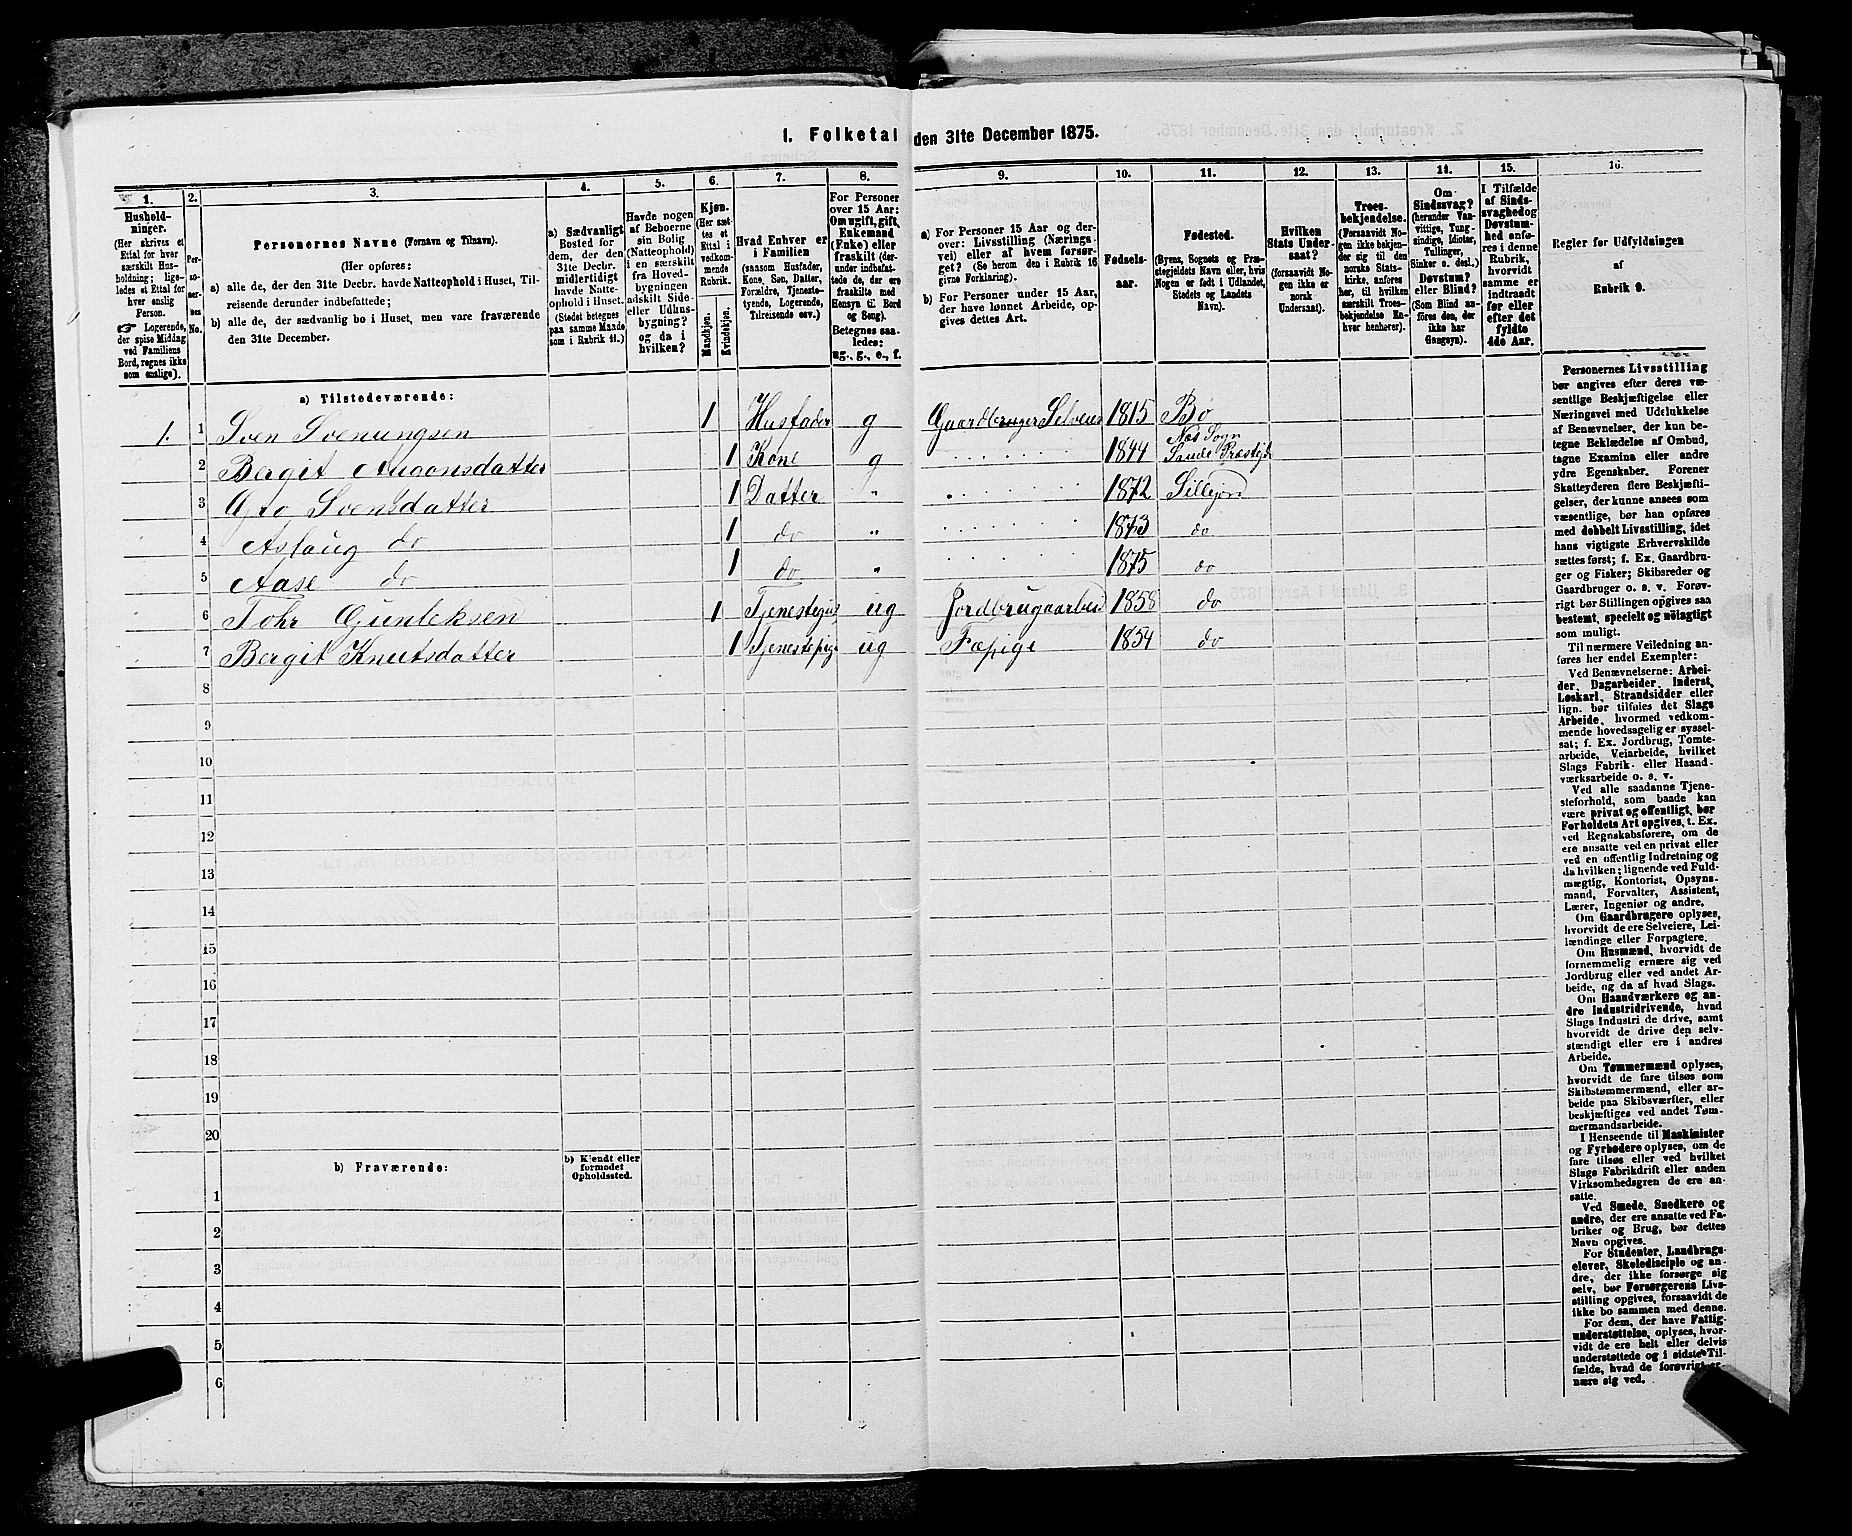 1. Folketal den 31te December 1875.
1. 2. 3. 4. 5. 6. 7. 8. 9. 10. 11. 12. 13. 14. 15. 16.
Hushold-
ninger.
(Her skrives et
Ettal for hver
særskilt Hus-
holdning; lige-
ledes et Ettal for
hver enslig
Person.
☞ Logerende,
der spise Middag
ved Familiens
Bord, regnes ikke
som enslige).
Per-
so-
ner-
nes
No.
Personernes Navne (Fornavn og Tilnavn).
(Her opføres:
a) alle de, der den 31te Decbr. havde Natteophold i Huset, Til-
reisende derunder indbefattede;
b) alle de, der sædvanlig bo i Huset, men vare fraværende
den 31te December.
a) Sædvanligt
Bosted for
dem, der den
31te Decbr.
midlertidigt
havde Natte-
ophold i Huset.
(Stedet betegnes
paa samme Maade
som i Rubrik 11.)
Havde nogen
af Beboerne
sin Bolig
(Natteophold)
i en særskilt
fra Hoved-
bygningen
adskilt Side-
eller Udhus-
bygning?
og da i
hvilken?
Kjøn.
(Her sæt-
tes et
Ettal i
vedkom-
mende
Rubrik.
Mandkjøn.
Kvindekjøn.
Hvad Enhver er
i Familien
(saasom Husfader,
Kone, Søn, Datter,
Forældre, Tjeneste-
tyende, Logerende,
Tilreisende osv.)
For Personer
over 15 Aar:
Om ugift, gift,
Enkemand
(Enke) eller
fraskilt (der-
under indbefat-
tede de, der ere
fraskilte med
Hensyn til Bord
og Seng).
Betegnes saa-
ledes:
ug., g., e., f.
a) For Personer 15 Aar og der-
over: Livsstilling (Nærings-
vei) eller af hvem forsør-
get? (Se herom den i Rubrik 16
givne Forklaring).
b) For Personer under 15 Aar,
der have lønnet Arbeide, op-
gives dettes Art.
Fødsels-
aar.
Fødested.
(Byens, Sognets og Præ-
stegjeldets Navn eller, hvis
Nogen er født i Udlandet,
Stedets og Landets
Navn).
Hvilken
Stats Under-
saat?
(forsaavidt No-
gen ikke er
norsk
Undersaat).
Troes-
bekjendelse.
(Forsaavidt No-
gen ikke bekjen-
der sig til den
norske Stats-
kirke, anføres
her, til hvilken
særskilt Troes-
bekjendelse En-
hver henhører).
Om
Sindssvag?
(herunder Van-
vittige, Tung-
sindige, Idioter,
Tullinger,
Sinker o. desl.)
Døvstum?
eller Blind?
(Som Blind an-
føres den, der
ikke har
Gangsyn).
I Tilfælde
af Sinds-
svaghed og
Døvstum-
hed anfø-
res i denne
Rubrik,
hvorvidt
samme er
indtraadt
før eller
efter det
fyldte
4de Aar.
Regler for Udfyldningen
af
Rubrik 9.
a) Tilstedeværende:
1. 1 Sven Svenungsen 1 Husfader g Gaardbruger Selveier 1815 Bø
2 Bergit 1 Kone g 1844 Næs Sogn Saude Præstgjd
3 Svensdatter 1 Datter " 1872 Sillejord
4 Aslaug do 1 do " 1873 do
5 Aase do 1 do " 1875 do
6 Tohr Gunleksen 1 ug 1858 do
7 Bergit Knutsdatter 1 Tjenestepige ug Fæpige 1854 do
8
9
10
11
12
13
14
15
16
17
18
19
20
b) Fraværende:
b) Kjendt eller
formodet
Opholdssted.
1
2
3
4
5
6
Personernes Livsstilling
bør angives efter deres væ-
sentlige Beskjæftigelse eller
Næringsvei med Udelukkelse
af Benævnelser, der kun be-
tegne Beklædelse af Ombud,
tagne Examina eller andre
ydre Egenskaber. Forener
Skatteyderen flere Beskjæfti-
gelser, der kunne ansees som
væsentlige, bør han opføres
med dobbelt Livsstilling, idet
hans vigtigste Erhvervskilde
sættes først; f. Ex. Gaardbru-
ger og Fisker; Skibsreder og
Gaardbruger o. s. v. Forøv-
rigt bør Stillingen opgives saa
bestemt, specielt og nøiagtigt
som muligt.
Til nærmere Veiledning an-
føres her endel Exempler:
Ved Benævnelserne: Arbei-
der, Dagarbeider, Inderst,
Løskarl, Strandsidder eller
lign. bør tilføies det Slags
Arbeide, hvormed vedkom-
mende hovedsagelig er syssel-
sat; f. Ex. Jordbrug, Tomte-
arbeide, Veiarbeide, hvilket
Slags Fabrik- eller Haand-
værksarbeide o. s. v.
Ved alle saadanne Tjene-
steforhold, som baade kan
være privat og offentligt, bør
Forholdets Art opgives, t. Ex.
ved Regnskabsførere, om de
ere ansatte ved en privat eller
ved en offentlig Indretning og
da hvilken; lignende ved Fuld-
mægtig, Kontorist, Opsyns-
mand, Forvalter, Assistent,
Lærer, Ingeniør og andre.
Om Gaardbrugere oplyses,
hvorvidt de ere Selveiere, Lei-
lændinge eller Forpagtere.
Om Husmænd, hvorvidt de
fornemmelig ernære sig ved
Jordbrug eller ved andet Ar-
beide, og da af hvad Slags.
Om Haandværkere og an-
dre Industridrivende, hvad
Slags Industri de drive, samt
hvorvidt de drive den selv-
stændigt eller ere i andres
Arbeide.
Om Tømmermænd oplyses,
hvorvidt de fare tilsøs som
Skibstømmermænd, eller ar-
beide paa Skibsværfter, eller
beskjæftiges ved andet Tøm-
mermandsarbeide.
I Henseende til Maskinister
og Fyrbødere oplyses, om de
fare tilsøs eller ved hvilket
Slags Fabrikdrift eller anden
Virksomhedsgren de ere an-
satte.
Ved Smede, Snedkere og
andre, der ere ansatte ved Fa-
briker og Brug, bør dettes
Navn opgives.
For Studenter, Landbrugs-
elever, Skoledisciple og an-
dre, der ikke forsørge sig
selv, bør Forsørgerens Livs-
stilling opgives, forsaavidt de
ikke bo sammen med denne.
For dem, der have Fattig-
understøttelse, oplyses, hvor-
vidt de ere helt eller delvis
understøttede og i sidste Til-
fælde, hvad de forøvrigt er-
nære sig ved.